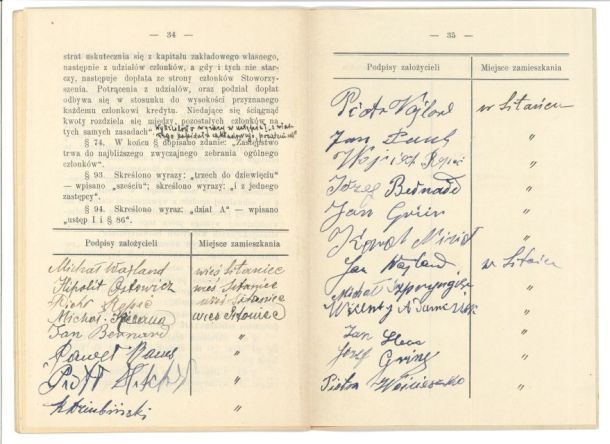 — 34 —
strat uskutecznia się z kapitału zakładowego własnego,
następnie z udziałów członków, a gdy i tych nie star-
czy, następuje dopłata ze strony członków Stowarzy-
szenia. Potrącenia z udziałów, oraz podział dopłat
odbywa się w stosunku do wysokości przyznanego
każdemu członkowi kredytu. Niedające się ściągnąć
kwoty rozdziela się między pozostałych członków na
tych samych zasadach".
§ 74. W końcu § dopisano zdanie: „Zastępstwo
trwa do najbliższego zwyczajnego zebrania ogólnego
członków".
§ 93. Skreślono wyrazy: „trzech do dziewięciu"
— wpisano „sześciu"; skreślono wyrazy: „i z jednego
zastępcy".
§ 94. Skreślono wyraz: „dział A" — wpisano
„ustęp I i § 86".
Podpisy założycieli Miejsce zamieszkania
Michał Wajland wieś Sitaniec
Hipolit Ostowicz wieś Sitaniec
Piotr Repeć wieś Sitaniec
Michał wieś Sitaniec
Jan Bernard "
Paweł "
Piotr "
"
— 35 —
Podpisy założycieli Miejsce zamieszkania
Piotr Wajland w Sitańcu
Jan "
Wojciech Repeć "
Józef Bernad "
Jan "
"
Jan Wajland w Sitańcu
Michał "
Wincenty Adamczuk "
Jan "
Józef "
Piotr "